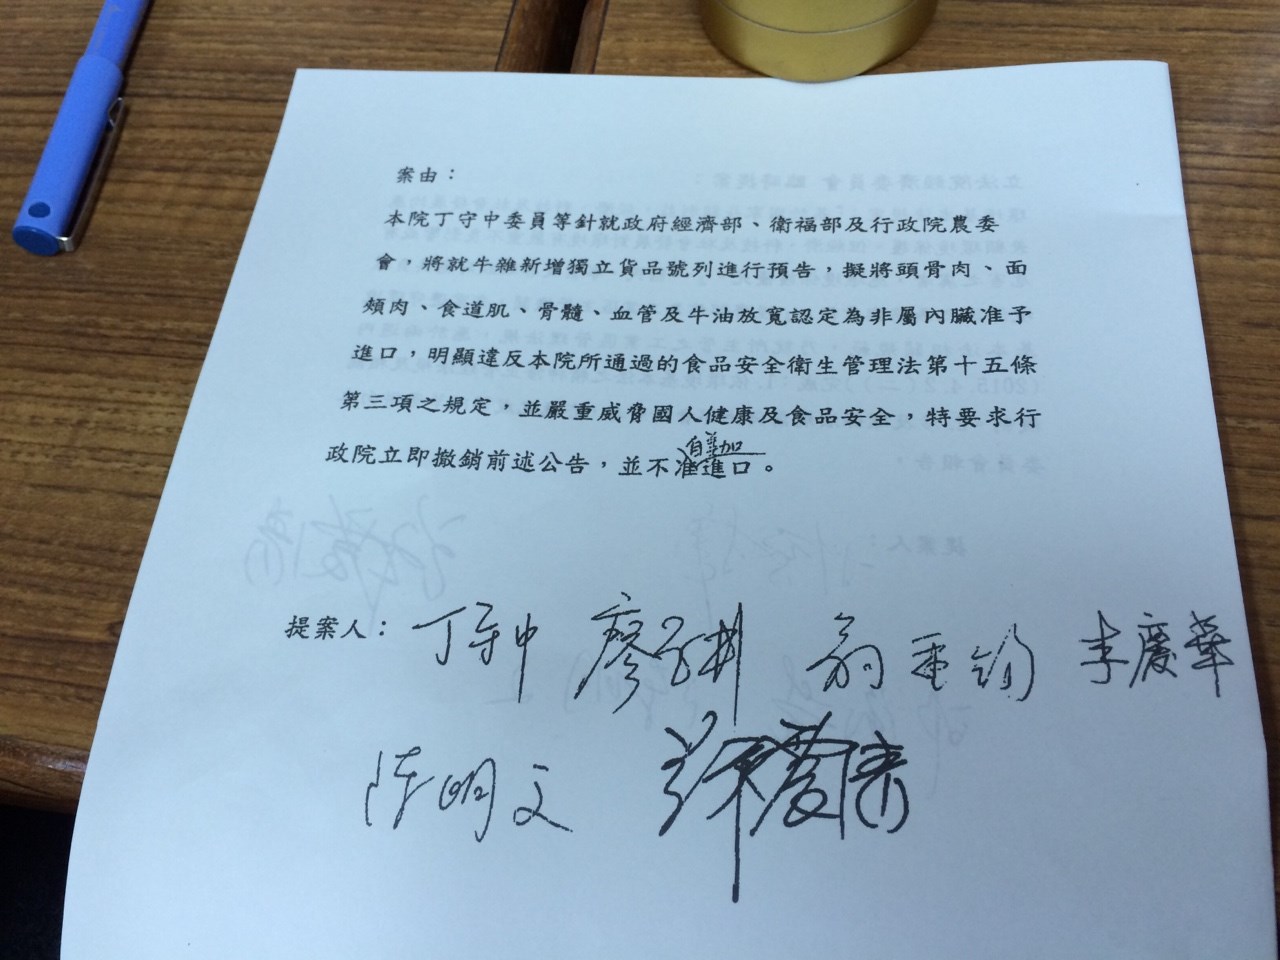 案由：
本院丁守中委員等針就政府經濟部、衛福部及行政院農委
會，將就牛雜新增獨立貨品號列進行預告，擬將頭骨肉、面
頰肉、食道肌、骨髓、血管及牛油放寬認定為非屬內臟准予
進口，明顯違反本院所通過的食品安全衛生管理法第十五條
第三項之規定，並嚴重威脅國人健康及食品安全，特要求行
自美加
政院立即撤銷前述公告，並不准進口。
提案人： 丁守中 廖 翁重鈞 李慶華
陳明文